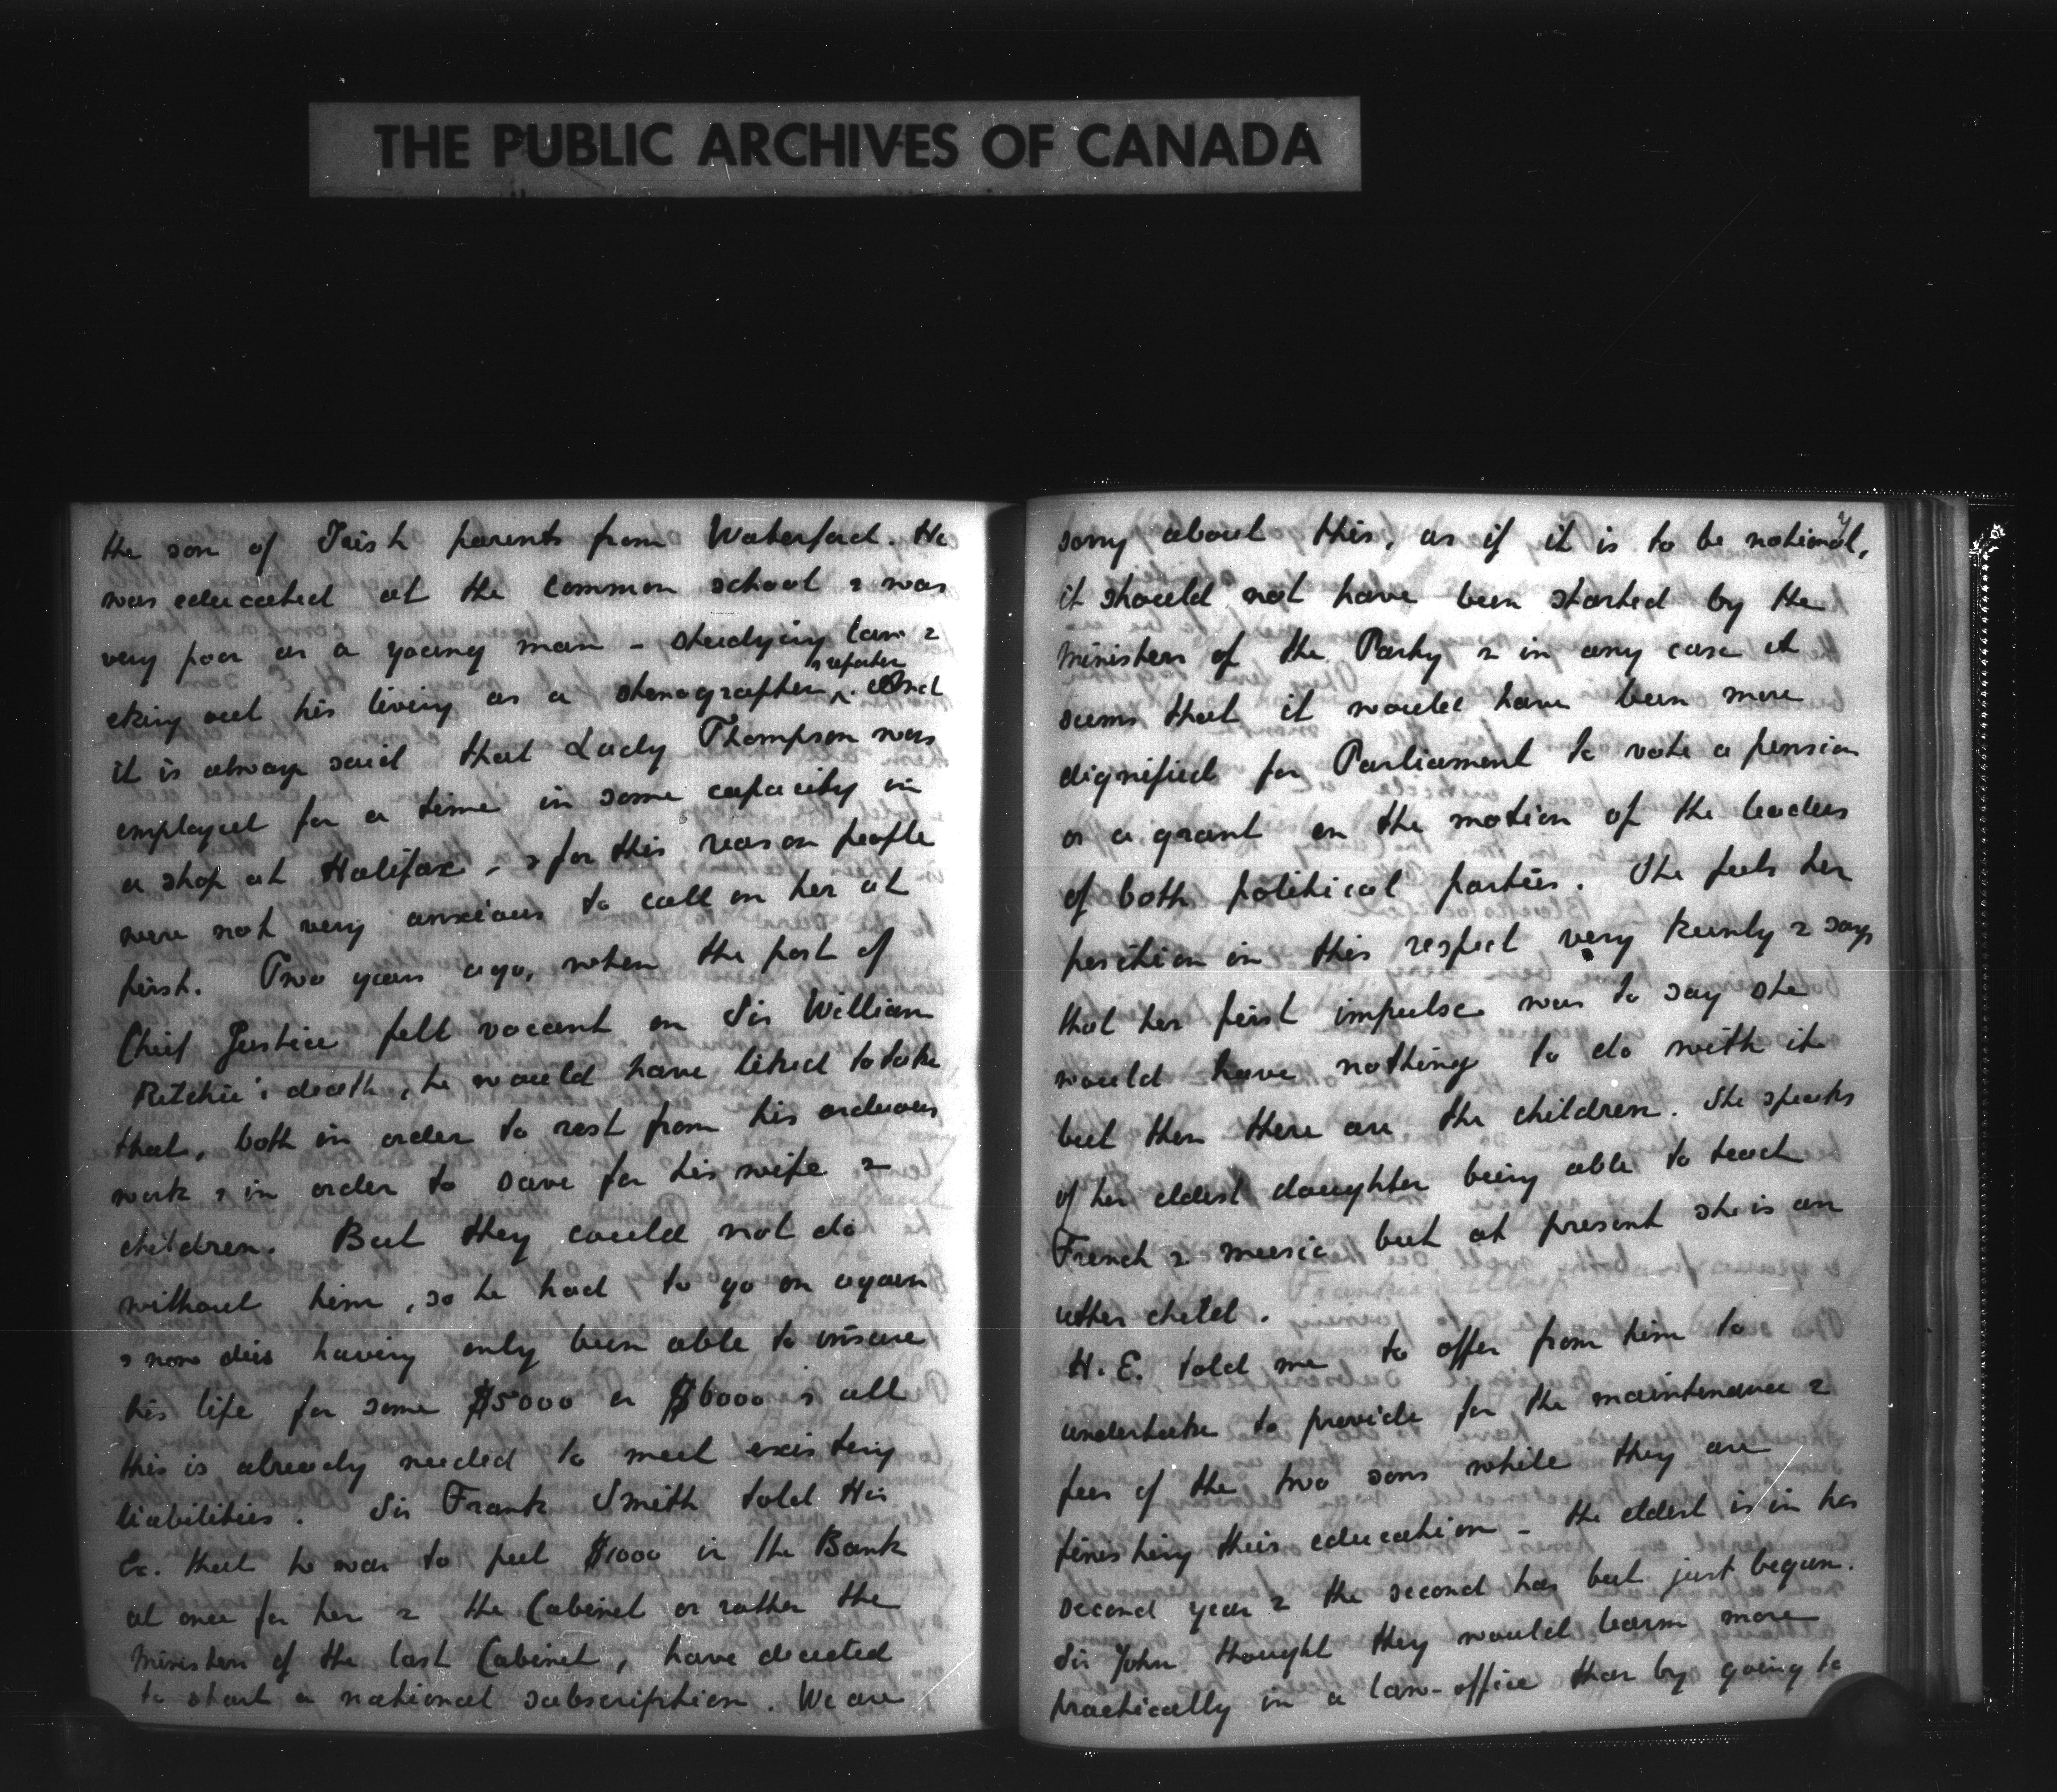 THE PUBLIC ARCHIVES OF CANADA
the son of Irish parents from Waterford. He
was educated at the common school & was
very poor as a young man - studying law &
eking out his living as a stenographer & reporter. And
it is always said that Lady Thompson was
employed for a time in some capacity in
a shop at Halifax - & for this reason people
were not very anxious to call on her at
first. Two years ago, when the post of
Chief Justice fell vacant on Sir William
Ritchie's death, he would have liked to take
that, both in order to rest from his arduous
work & in order to save for his wife &
children. But they could not do
without him, so he had to go on again
& now dies having only been able to insure
his life for some $5000 or $6000 & all
this is already needed to meet existing
liabilities. Sir Frank Smith told His
Ex. that he was to put $1000 in the Bank
at once for her & the Cabinet or rather the
Ministers of the last Cabinet, have decided
to start a national subscription. We are
sorry about this, as if it is to be national,
it should not have been started by the
Ministers of the Party & in any case it
seems that it would have been more
dignified for Parliament to vote a pension
or a grant on the motion of the leaders
of both political parties. She feels her
position in this respect very keenly & says
that her first impulse was to say she
would have nothing to do with it
but then there are the children. She speaks
of her eldest daughter being able to teach
French & music but at present she is an
utter child.
H.E. told me to offer from him to
undertake to provide for the maintenance &
fees of the two sons while they are
finishing their education - the eldest is in his
second year & the second has but just begun.
Sir John thought they would learn more
practically in a law-office than by going to